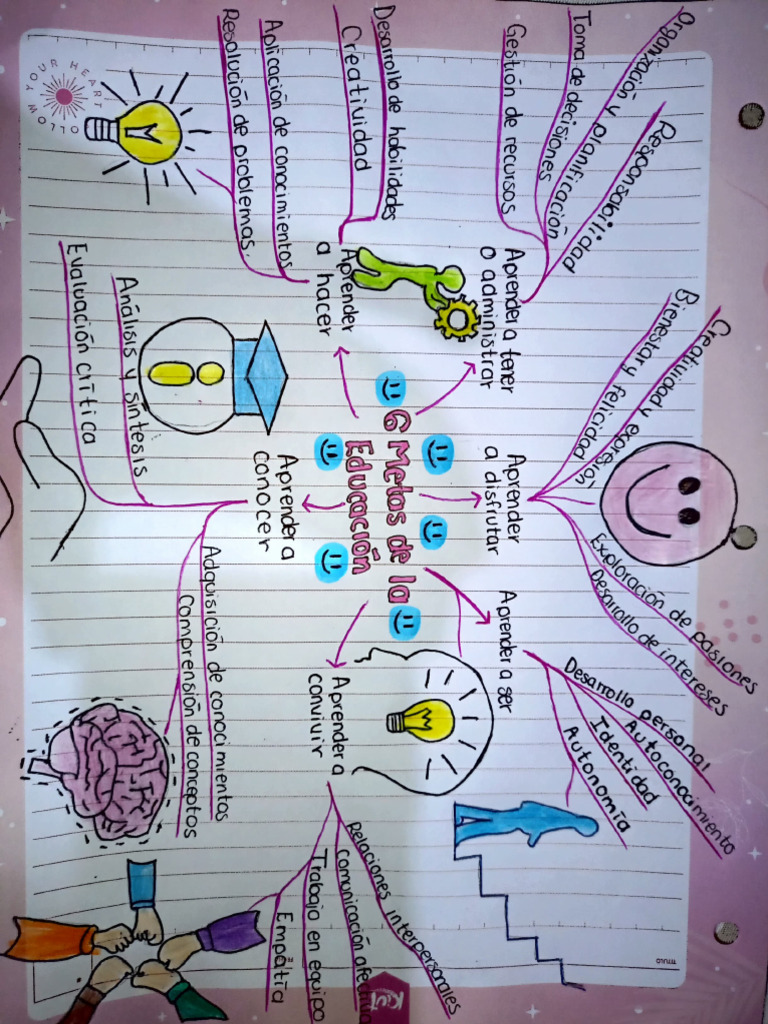 6 Metas de la
Educación
Aprender a tener
o administrar
Organización y planificación
Responsabilidad
Toma de decisiones
Gestión de recursos
Aprender
a disfrutar
Creatividad y expresión
Bienestar y felicidad
Exploración de pasiones
Desarrollo de intereses
Aprender a ser
Desarrollo personal
Autoconocimiento
Identidad
Autonomía
Aprender a
convivir
Relaciones interpersonales
Comonicación
Trabajo en equipo
Empatía
Aprender a
conocer
Adquisición de conocimientos
Comprensión de conceptos
Análisis y síntesis
Evaluación crítica
Aprender
a hacer
Desarrollo de habilidades
Creatividad
Aplicación de conocimientos
Resolución de problemas.
YOUR HEART
Kiut